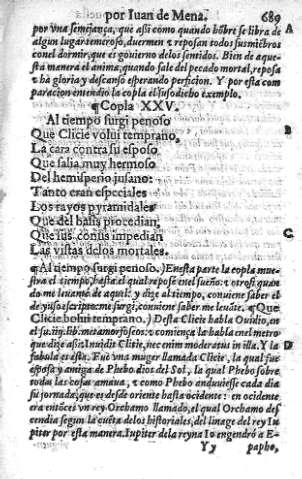 por Iuan de Mena. 689
por vna semijança, que assi como quando hõbre se libra de A
algun lugar temeroso, duermen z reposan todos sus miẽbros
con el dormir, que es gouierno de los sentidos. Bien de aque-
sta manera el anima, quando sale del pecado mortal, reposa
z ha gloria y descanso esperando perficion. Y por esta com
paracion entiendio la copla el susodicho exemplo.
¶Copla XXV.
Al tiempo surgi penoso
Que Clicie volui temprano, B
La cara contra su esposo
Que salia muy hermoso
Del hemisperio jusano:
Tanto eran especiales
Los rayos pyramidales
Que del basis procedian,
Que sus conus impedian C
Las vistas delos mortales.
¶Al tiempo surgi penoso.) En esta parte la copla mue-
stra el tiempo, hasta el qual reposè en el sueño: z otrosi, quan
do me leuantè de aquel: y dize al tiempo, conuiene saber el
de yuso escripto me surgi, conuiene saber me leuãtè. ¶Que
Clicie bolui temprano.) Desta Clicie habla Ouidio, en
el su .iiij. lib. metamorfoseos: z comiença la habla en el metro
que dize assi: Inuidit Clicie, nec enim moderatus in illa. Y la D
fabula es esta. Fuè vna muger llamada Clicie, la qual fue
esposa y amiga de Phebo dios del Sol, la qual Phebo sobre
todas las cosas amaua, z como Phebo anduuiesse cada dia
su jornada, que es desde oriente hasta ocidente: en ocidente
era entõces vn rey Orchamo llamado, el qual Orchamo des
cendia segun la cuẽta delos historiales, del linage del rey Iu
piter por esta manera. Iupiter dela reyna Io engendrò a E-
Y y papho,